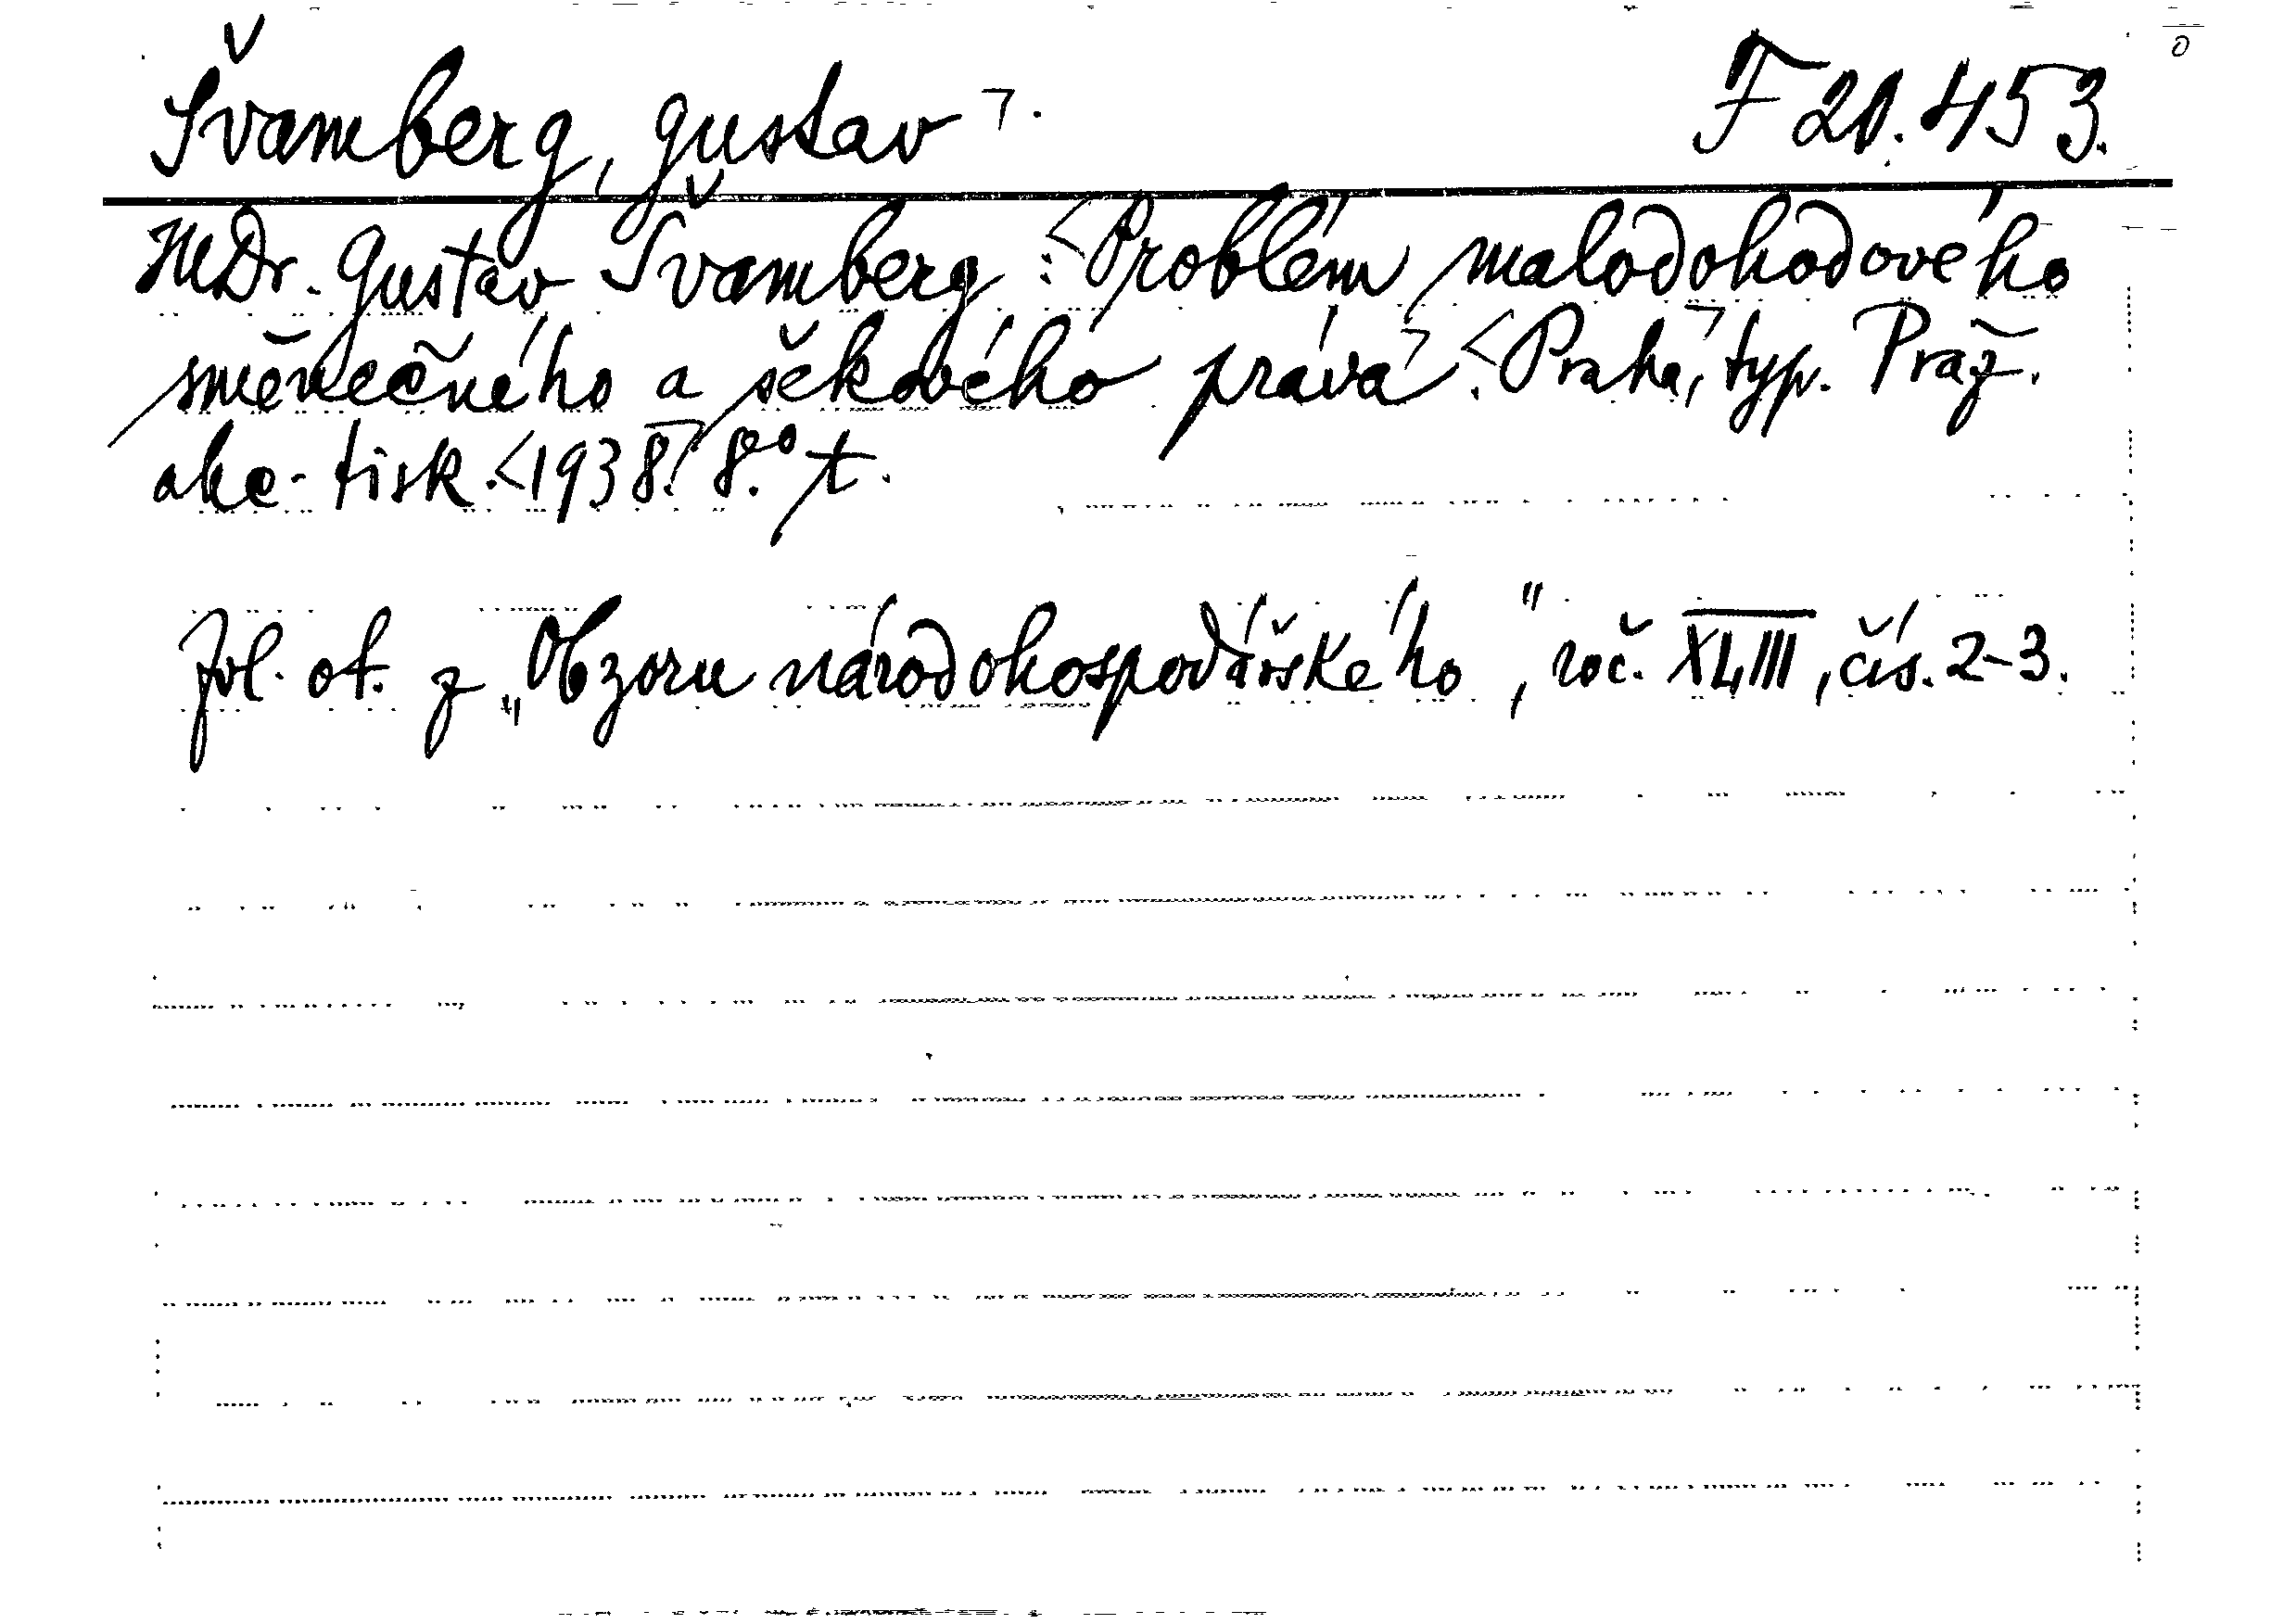 Švamberg, Gustav ¬. F 20.453.
JUDr. Gustav Švamberg: <Problém malodohodového
směnečného a šekového práva¬. <Praha,¬ typ. Praž.
akc. tisk. <1938.¬ 8.° t.
Zvl. ot. z „Obzoru národohospodářského", roč. XLIII, čís. 2-3.